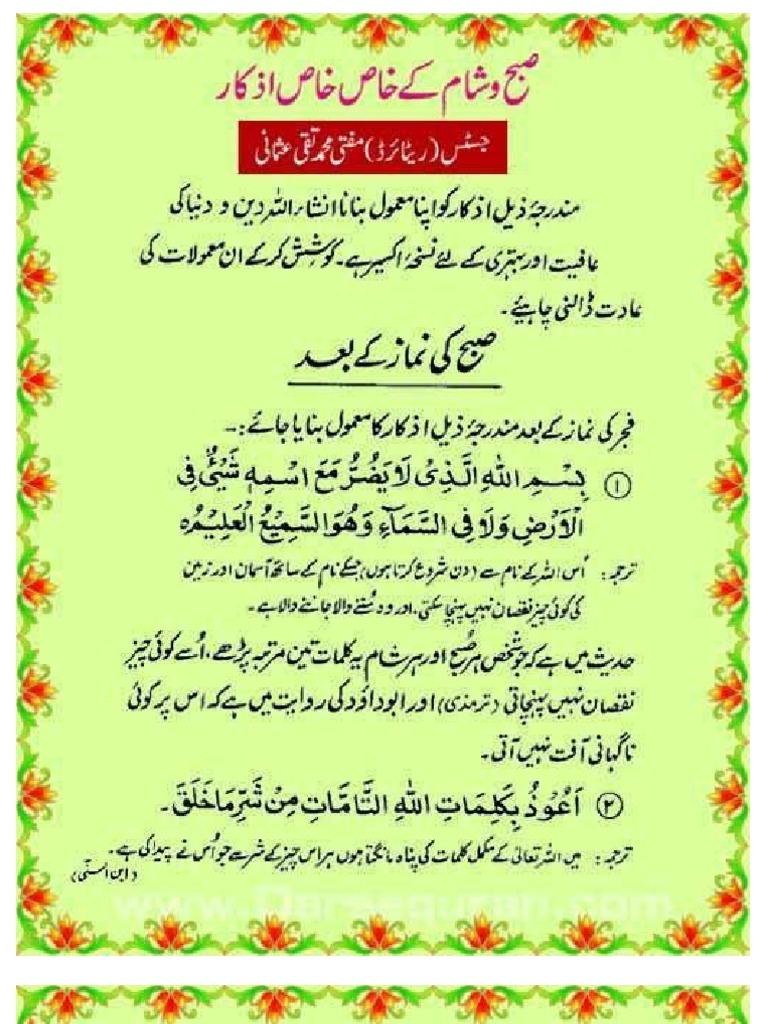 صبح و شام کے خاص خاص اذکار
جسٹس (ریٹائرڈ) مفتی محمد تقی عثمانی
مندرجۂ ذیل اذکار کو اپنا معمول بنانا انشاء اللہ دین و دنیا کی
عافیت اور بہتری کے لئے نسخۂ اکسیر ہے۔ کوشش کر کے ان معمولات کی
عادت ڈالنی چاہیئے۔
صبح کی نماز کے بعد
فجر کی نماز کے بعد مندرجۂ ذیل اذکار کا معمول بنایا جائے :۔
① بِسْمِ اللّٰهِ الَّذِىْ لَا يَضُرُّ مَعَ اسْمِهٖ شَيْئٌ فِى
الْاَرْضِ وَلَا فِى السَّمَآءِ وَهُوَ السَّمِيْعُ الْعَلِيْمُ ه
ترجمہ : اُس اللہ کے نام سے (دن شروع کرتا ہوں) جسکے نام کے ساتھ آسمان اور زمین
کی کوئی چیز نقصان نہیں پہنچا سکتی، اور وہ سُننے والا جاننے والا ہے۔
حدیث میں ہے کہ جو شخص ہر صبح اور ہر شام یہ کلمات تین مرتبہ پڑھے، اُسے کوئی چیز
نقصان نہیں پہنچاتی (ترمذی) اور ابوداؤد کی روایت میں ہے کہ اس پر کوئی
ناگہانی آفت نہیں آتی۔
② اَعُوْذُ بِكَلِمَاتِ اللّٰهِ التَّامَّاتِ مِنْ شَرِّ مَا خَلَقَ۔
ترجمہ : میں اللہ تعالیٰ کے مکمل کلمات کی پناہ مانگتا ہوں ہر اس چیز کے شر سے جو اُس نے پیدا کی ہے۔
(ابن السنّی)
www.Darsequran.com